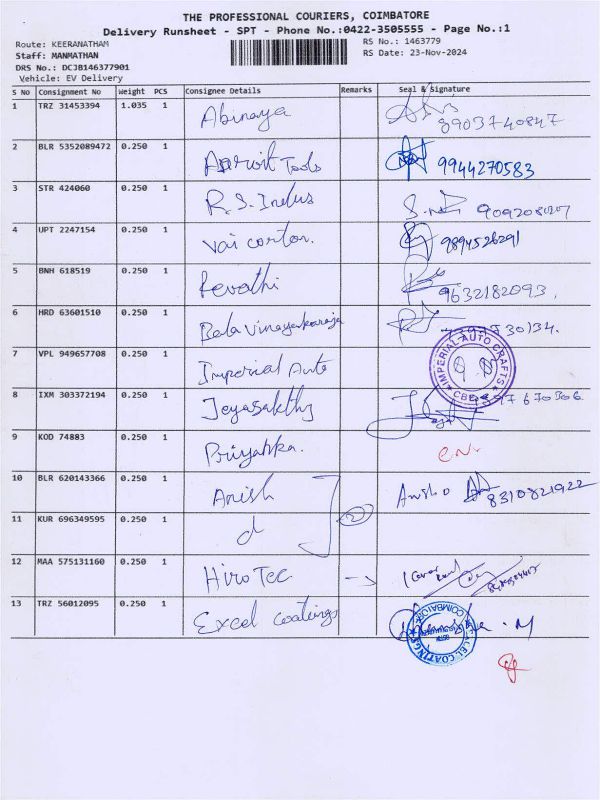 THE PROFESSIONAL COURIERS, COIMBATORE
Delivery Runsheet - SPT - Phone No.:0422-3505555 - Page No.:1
Route: KEERANATHAM RS No.: 1463779
Staff: MANMATHAN RS Date: 23-Nov-2024
DRS No.: DCJB146377901
Vehicle: EV Delivery
S No Consignment No Weight PCS Consignee Details Remarks Seal & Signature
1 TRZ 31453394 1.035 1 Abinaya 8903740847
2 BLR 5352089472 0.250 1 Tools 9944270583
3 STR 424060 0.250 1 R.S. Indus
4 UPT 2247154 0.250 1 Vai carton. 9894526291
5 BNH 618519 0.250 1 Revathi 9632182093.
6 HRD 63601510 0.250 1 Balavinayakaraja
7 VPL 949657708 0.250 1 Imperial Auto IMPERIAL AUTO CRAFTS CBE
8 IXM 303372194 0.250 1 Jeyasakthy
9 KOD 74883 0.250 1 Priyanka.
10 BLR 620143366 0.250 1 Anish 8310821922
11 KUR 696349595 0.250 1 d 2
12 MAA 575131160 0.250 1 Hiro Tec →
13 TRZ 56012095 0.250 1 Excel coatings EXCEL COATINGS COIMBATORE